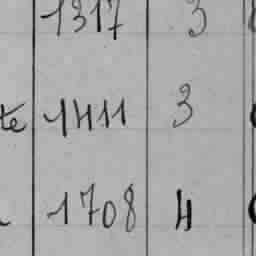 1317 3
te 1411 3
1708 4